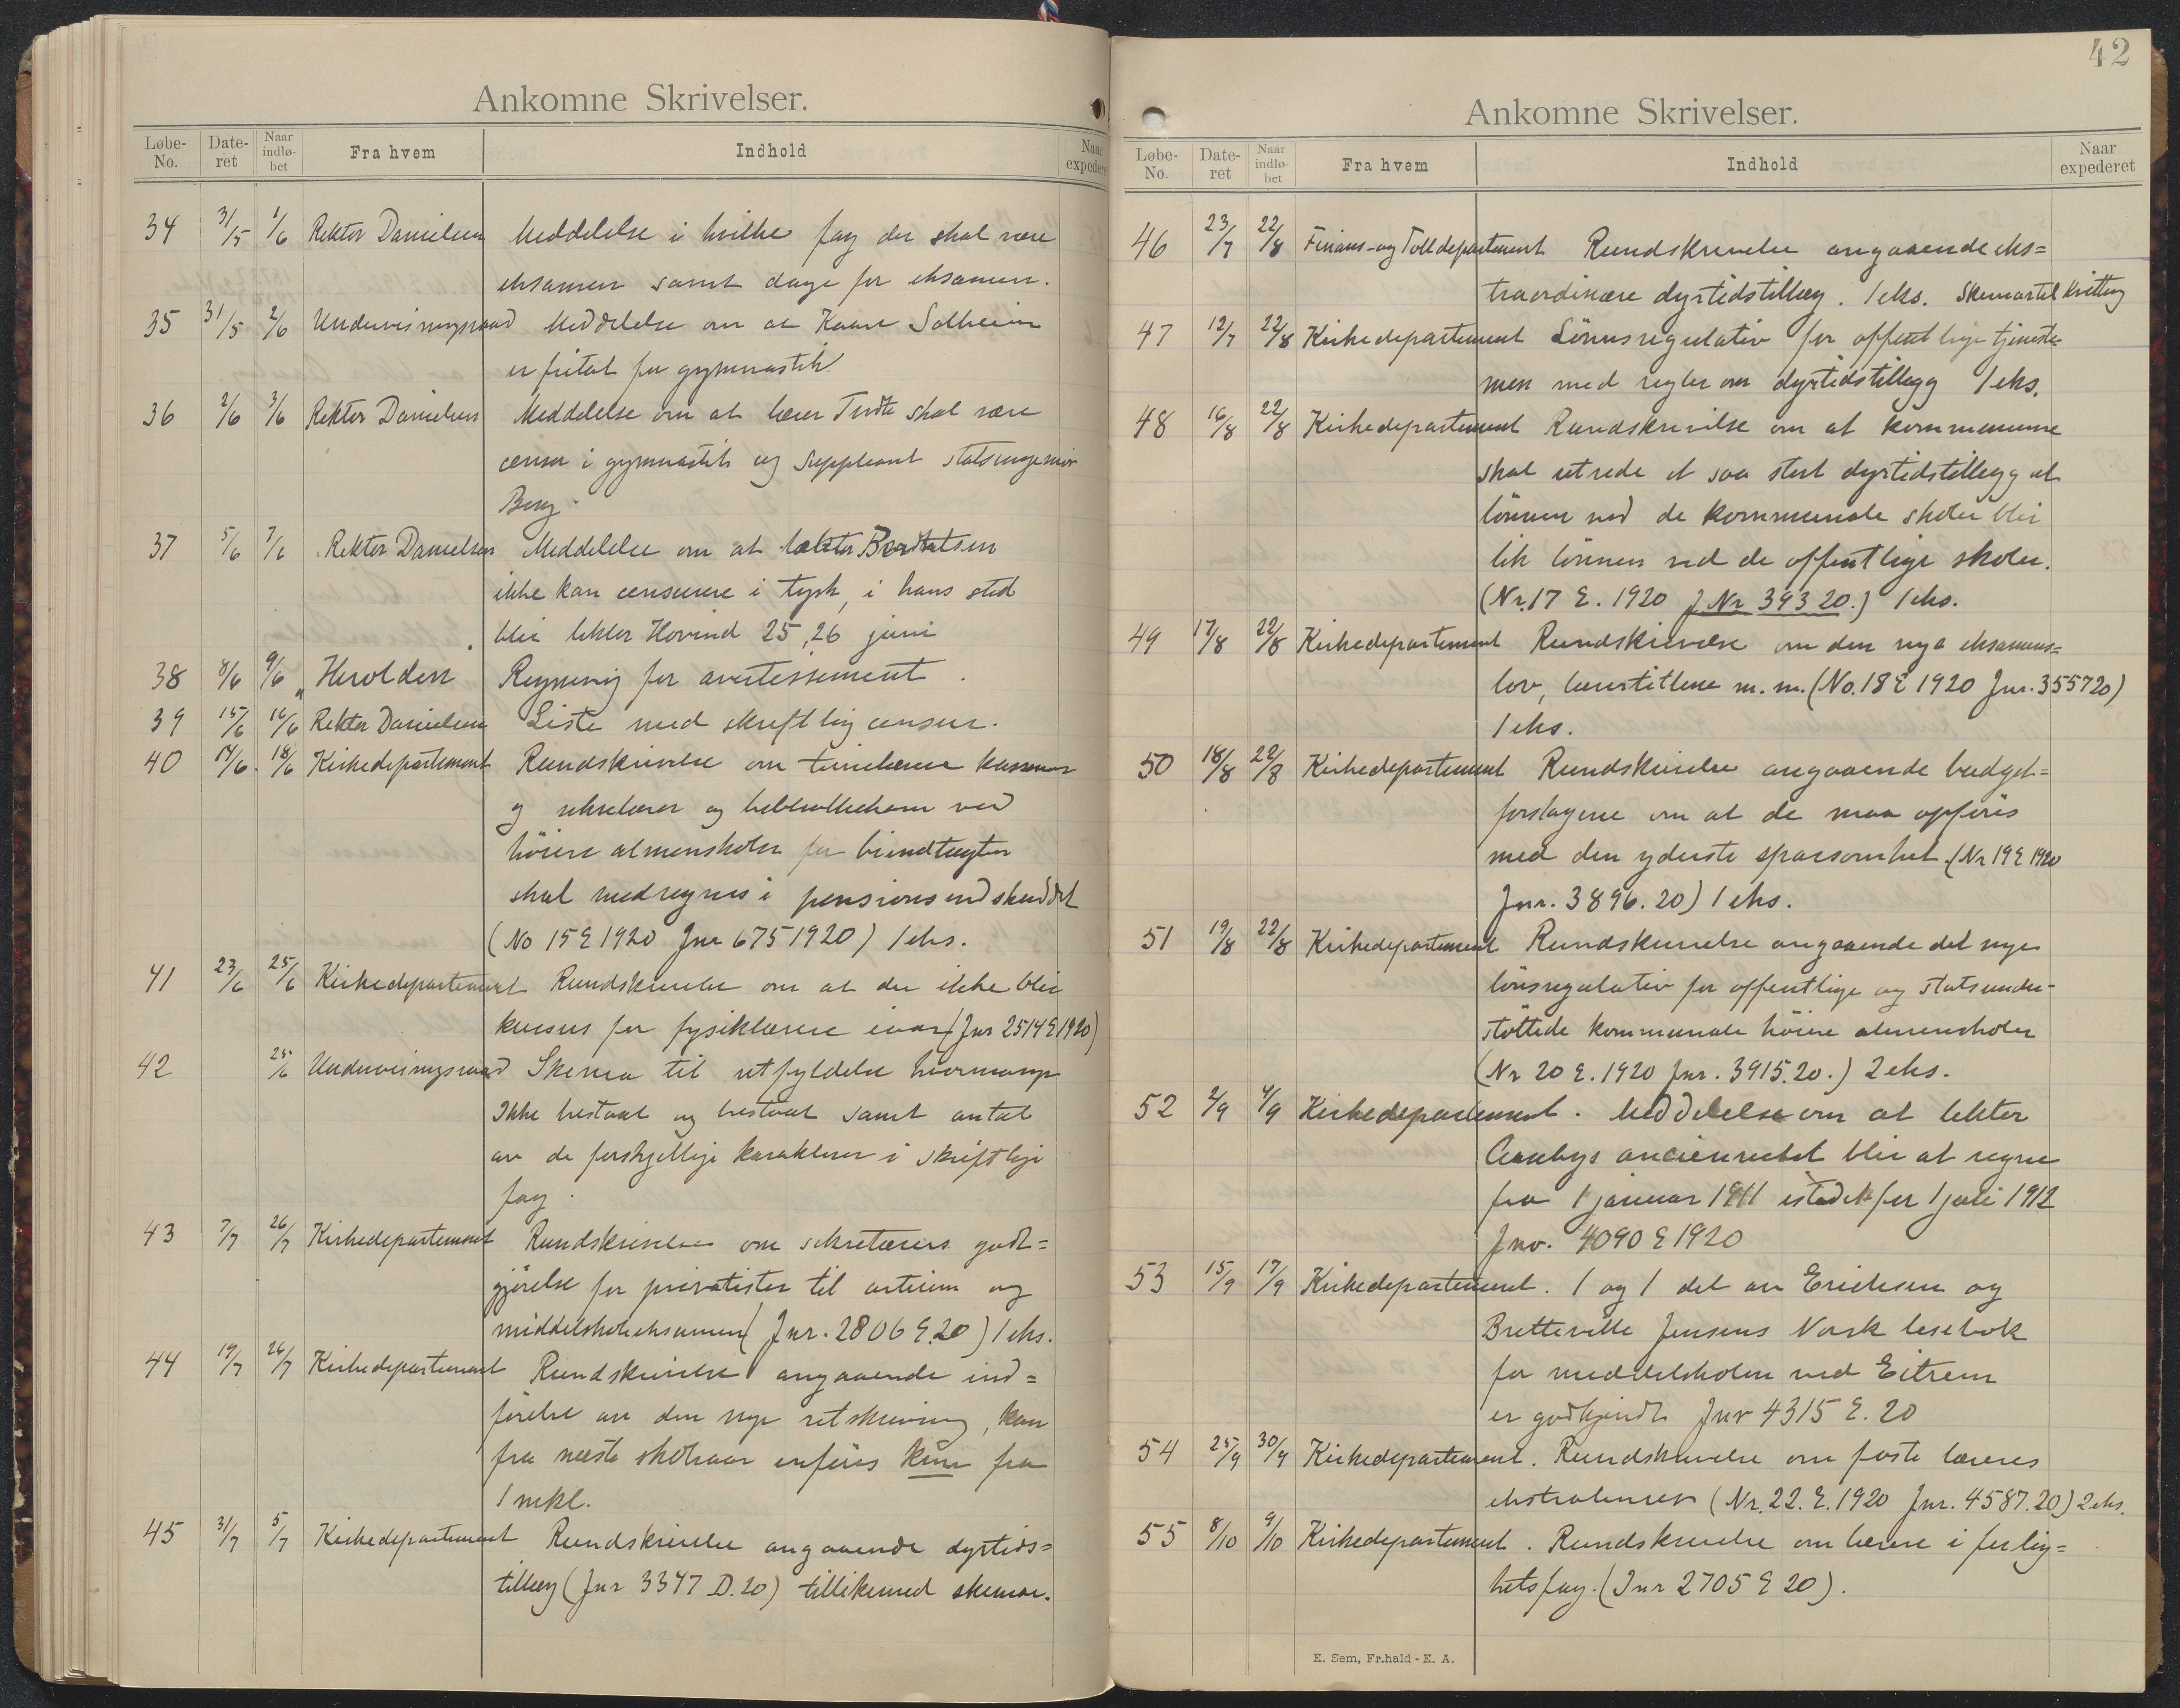 Ankomne Skrivelser.
Løbe-No. Date-ret Naar indlø-bet Fra hvem Indhold Naar expedere
34 31/5 1/6 Rektor Danielsen Meddelelse i hvilke fag der skal være
eksamen samt dage for eksamen.
35 31/5 2/6 Undervisningsraad Meddelelse om at Kaare Solheim
er fritat for gymnastik
36 2/6 3/6 Rektor Danielsen Meddelelse om at lærer skal være
censor i gymnastik og suppleant statsingeniør
Berg
37 5/6 7/6 Rektor Danielsen Meddelelse om at lektor
ikke kan censurere i tysk, i hans sted
blir lektor Hovind 25, 26 juni
38 8/6 9/6 Herolden Regning for avertissement.
39 15/6 16/6 Rektor Danielsen Liste med skriftlig censur.
40 17/6 18/6 Kirkedepartement Rundskrivelse om timelærere kasserer
og sekretærer og bibliothekarer ved
höiere almenskoler for biindtægter
skal medregnes i pensionsindskuddet
(No 15 E 1920 Jnr 675 1920) 1 eks.
41 23/6 25/6 Kirkedepartement Rundskrivelse om at der ikke blir
kursus for fysiklærere iaar (Jnr 2514 E 1920)
42 25/6 Undervisningsraad Skema til utfyldelse hvormange
Ikke bestaat og bestaat samt antal
av de forskjellige karakterer i skriftlige
fag.
43 7/7 26/7 Kirkedepartement Rundskrivelse om sekretærers godt=
gjörelse for privatister til artium og
middelskoleeksamen (Jnr. 2806 E. 20) 1 eks.
44 19/7 26/7 Kirkedepartement Rundskrivelse angaaende ind=
förelse av den nye retskrivning, kan
fra næste skoleaar indföres kun fra
1 mkl.
45 31/7 5/7 Kirkedepartement Rundskrivelse angaaende dyrtids=
tillæg (Jnr 3347 D. 20) tillikemed skemaer.
42
Ankomne Skrivelser.
Løbe-No. Date-ret Naar indlø-bet Fra hvem Indhold Naar expederet
46 23/7 22/8 Finans- og Tolldepartement Rundskrivelse angaaende eks=
traordinære dyrtidstillæg. 1 eks. Skemaer til
47 12/7 22/8 Kirkedepartement Lönnsregulativ for offentlige tjeneste-
men med regler om dyrtidstillegg 1 eks.
48 16/8 22/8 Kirkedepartement Rundskrivelse om at kommunene
skal utrede et saa stort dyrtidstillegg at
lönnen ved de kommunale skoler blir
lik lönnen ved de offentlige skoler.
(Nr. 17 E. 1920 J Nr 393 20.) 1 eks.
49 17/8 22/8 Kirkedepartement Rundskrivelse om den nye eksamens=
lov, lærertitlene m. m. (No. 18 E 1920 Jnr. 3557 20)
1 eks.
50 18/8 22/8 Kirkedepartement Rundskrivelse angaaende budget=
forslagene om at de maa opföres
med den yderste sparsomhet. (Nr 19 E 1920
Jnr. 3896. 20) 1 eks.
51 19/8 22/8 Kirkedepartement Rundskrivelse angaaende det nye
lönsregulativ for offentlige og statsunder-
stöttede kommunale höiere almenskoler
(Nr 20 E. 1920 Jnr. 3915. 20.) 2 eks.
52 2/9 4/9 Kirkedepartement. Meddelelse om at lektor
Aanbys ancienitet blir at regne
fra 1 januar 1911 istedetfor 1 juli 1912
Jnr. 4090 E 1920
53 15/9 17/9 Kirkedepartement. 1 og 1 del av Eriksen og
Bretteville Jensens Norsk lesebok
for middelskolen ved Eitrem
er godkjendt Jnr 4315 E. 20
54 25/9 30/9 Kirkedepartement. Rundskrivelse om faste læreres
ekstratimer (Nr. 22. E. 1920 Jnr. 4587. 20) 2 eks.
55 8/10 9/10 Kirkedepartement. Rundskrivelse om lærere i ferdig=
hetsfag. (Jnr 2705 E 20).
E. Sem, Fr.hald - E. A.